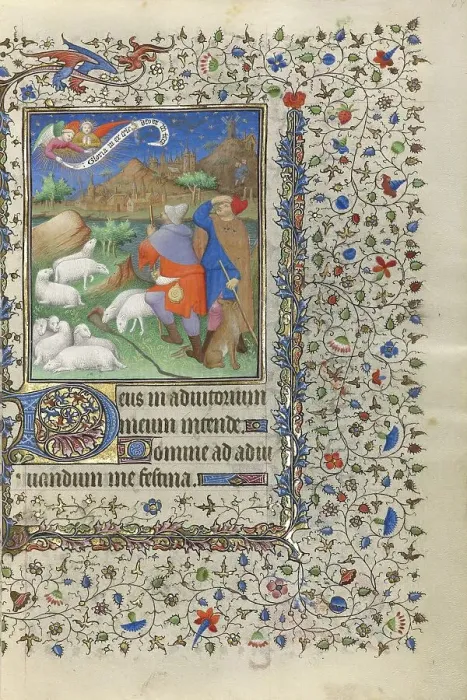 Gloria in excel
Deus in adiutorium
meum intende.
Domine ad adiu
uandum me festina.